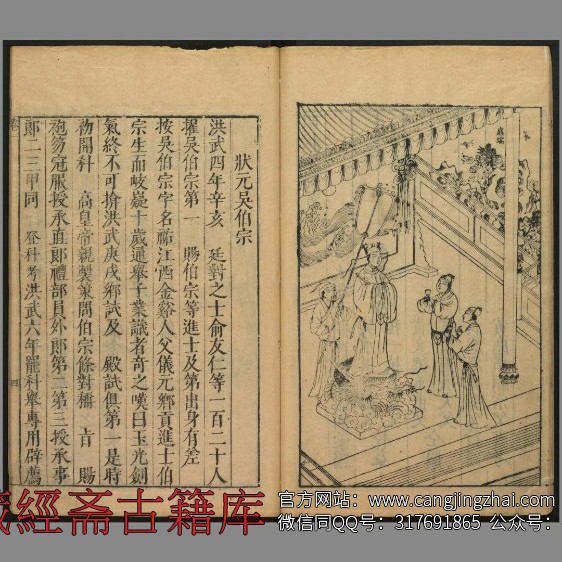 狀元吳伯宗
洪武四年辛亥 廷對之士俞友仁等一百二十人
擢吳伯宗第一 賜伯宗等進士及第出身有差
按吳伯宗字名祐江西金谿人父儀元鄉貢進士伯
宗生而岐嶷十歲通舉子業識者奇之嘆曰玉光劍
氣終不可揜洪武庚戌鄉試及 殿試俱第一是時
初開科 高皇帝親製策問伯宗條對稱 旨 賜
袍笏冠服授承直郎禮部員外郎第二第三授承事
郎二三甲同 登科考洪武六年罷科舉專用辟薦
藏經斋古籍库
官方网站：www.cangjingzhai.com
微信同QQ号：317691865 公众号：